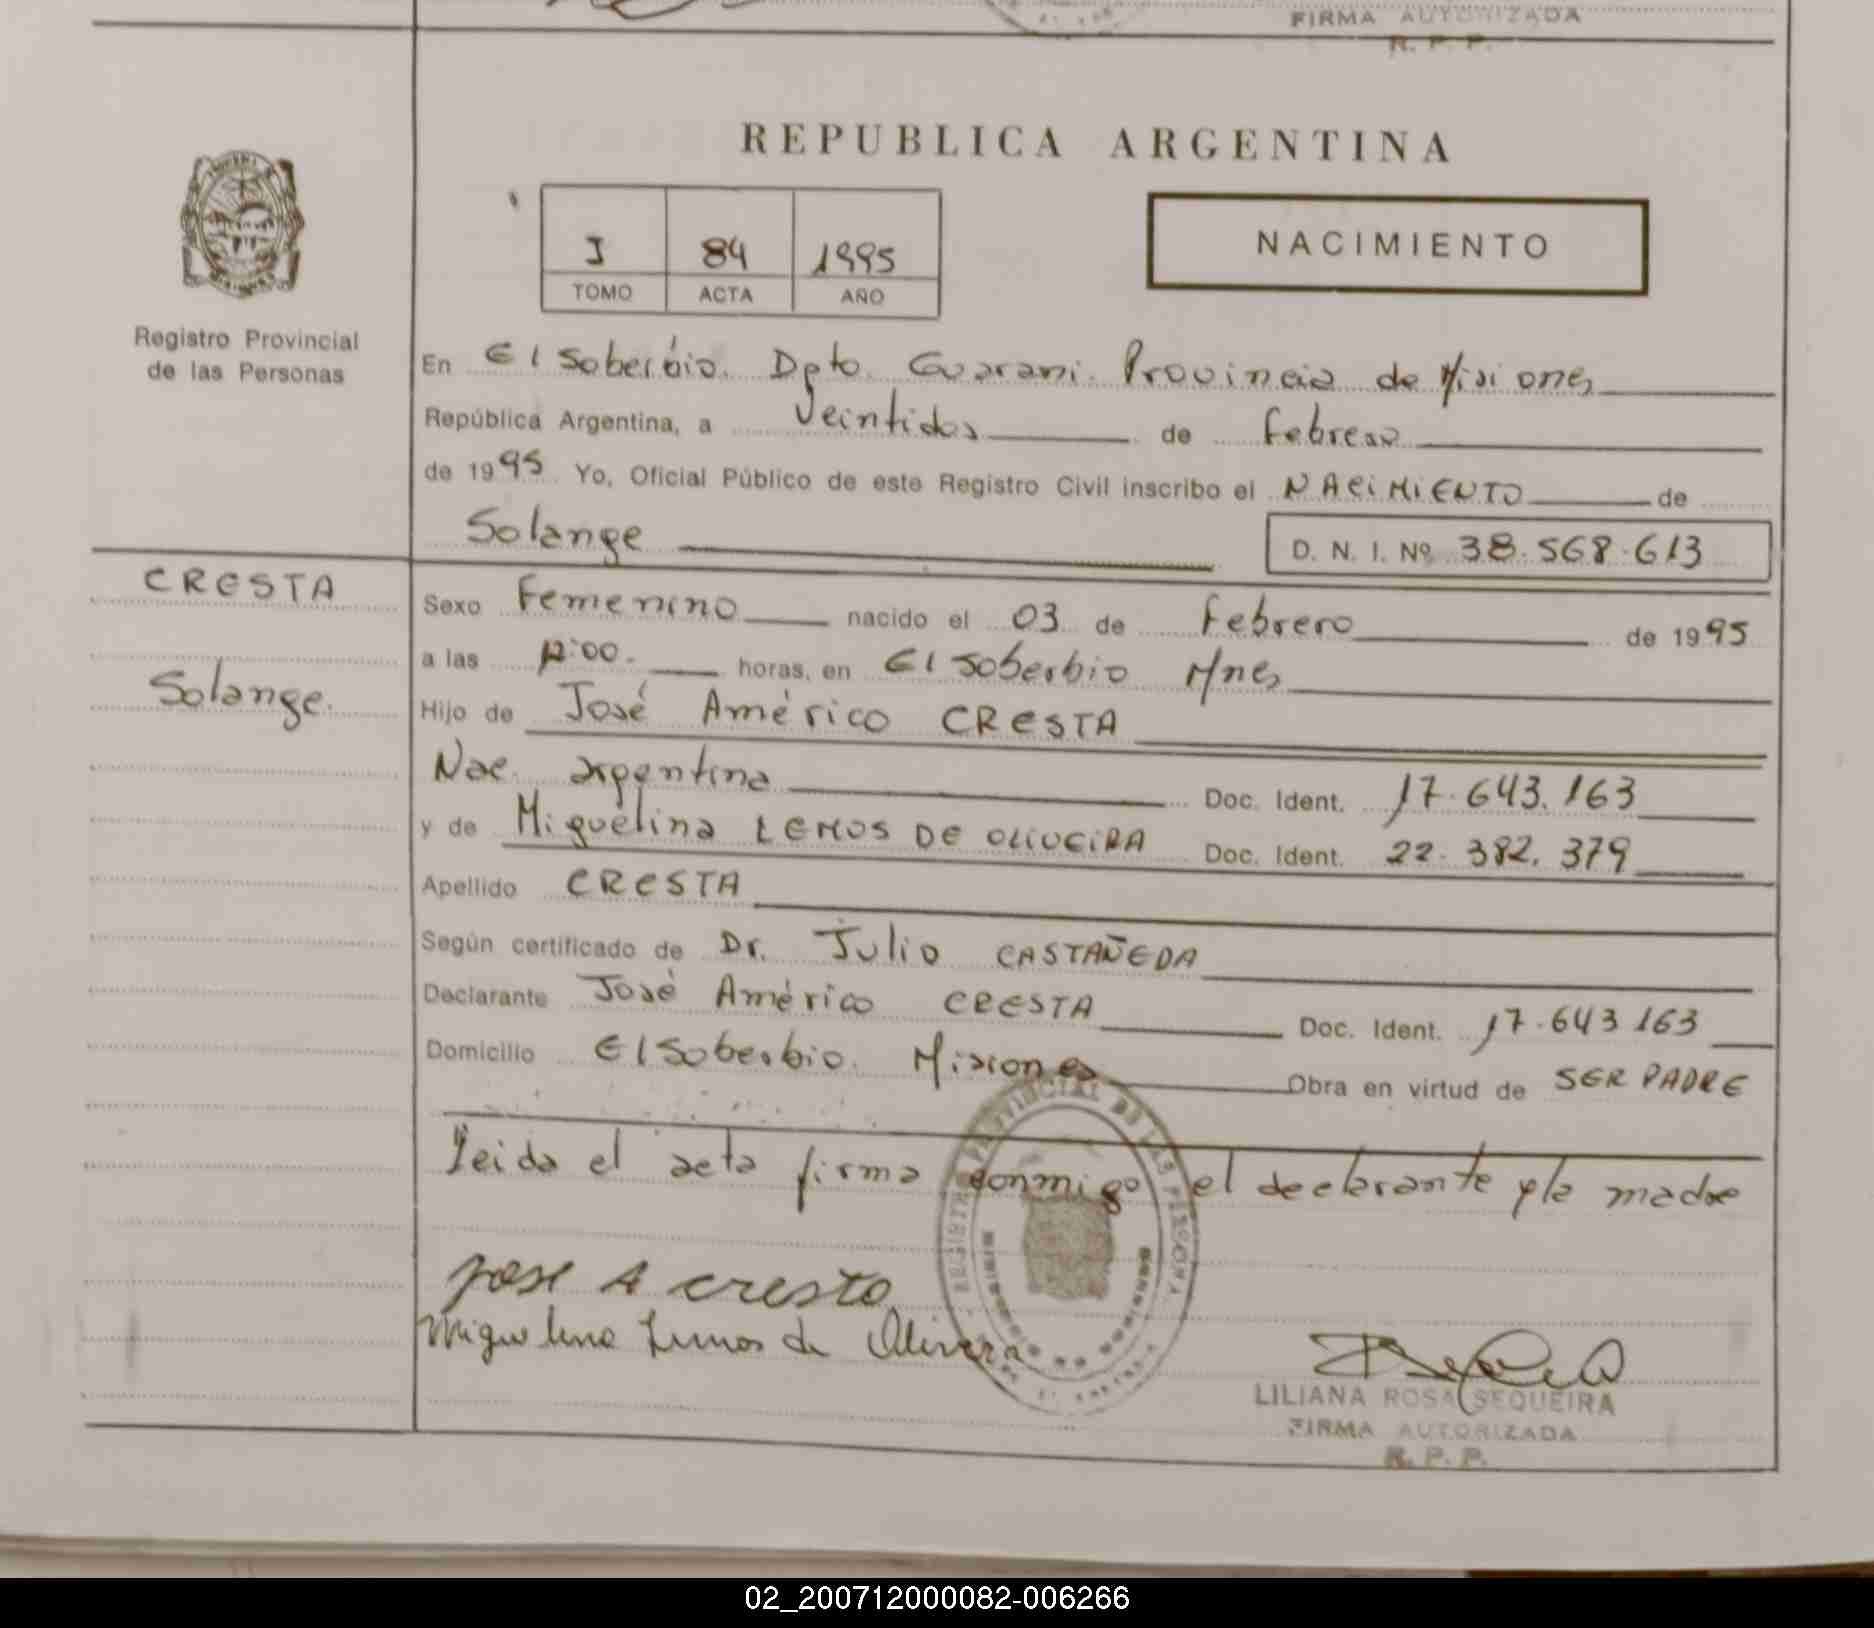 FIRMA AUTORIZADA
R. P. P.
REPUBLICA ARGENTINA
I 84 1995
TOMO ACTA AÑO
NACIMIENTO
Registro Provincial
de las Personas
En El Soberbio. Dpto. Guarani. Provincia de Misiones
República Argentina, a Veintidos de Febrero
de 1995 Yo, Oficial Público de este Registro Civil inscribo el NACIMIENTO de
Solange D. N. I. Nº 38.568.613
CRESTA
Solange.
Sexo Femenino nacido el 03 de Febrero de 1995
a las 12:00. horas, en El Soberbio Mnes
Hijo de José Américo CRESTA
Nac. argentina Doc. Ident. 17.643.163
y de Miguelina LEMOS DE OLIVEIRA Doc. Ident. 22.382.379
Apellido CRESTA
Según certificado de Dr. Julio CASTAÑEDA
Declarante José Américo CRESTA Doc. Ident. 17.643 163
Domicilio El Soberbio. Misiones Obra en virtud de SER PADRE
Leida el acta firma conmigo el declarante y la madre
REGISTRO PROVINCIAL DE LAS PERSONAS
jose A cresta
Miguelina Lemos de Olivera
LILIANA ROSA SEQUEIRA
FIRMA AUTORIZADA
R. P. P.
02_200712000082-006266